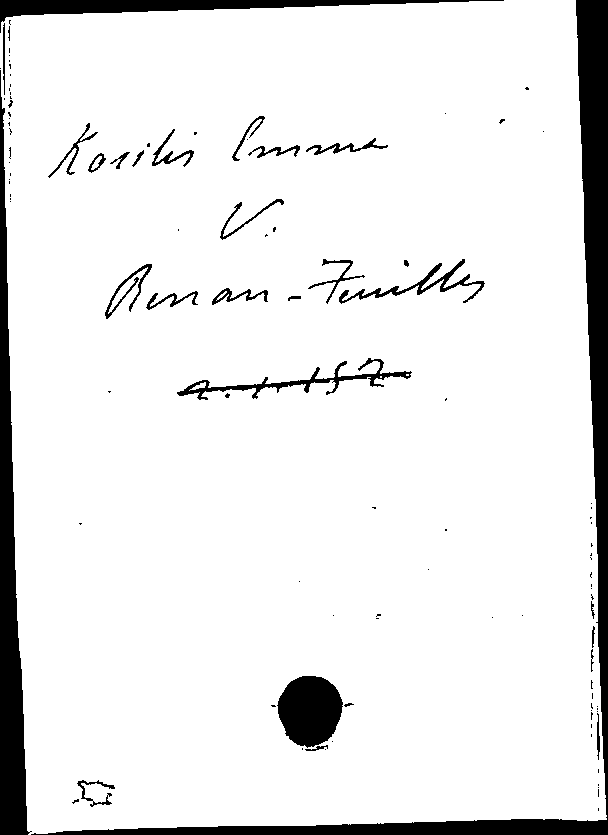 Kosilis Emma
V.
Renan-Feuilles
2.1.157